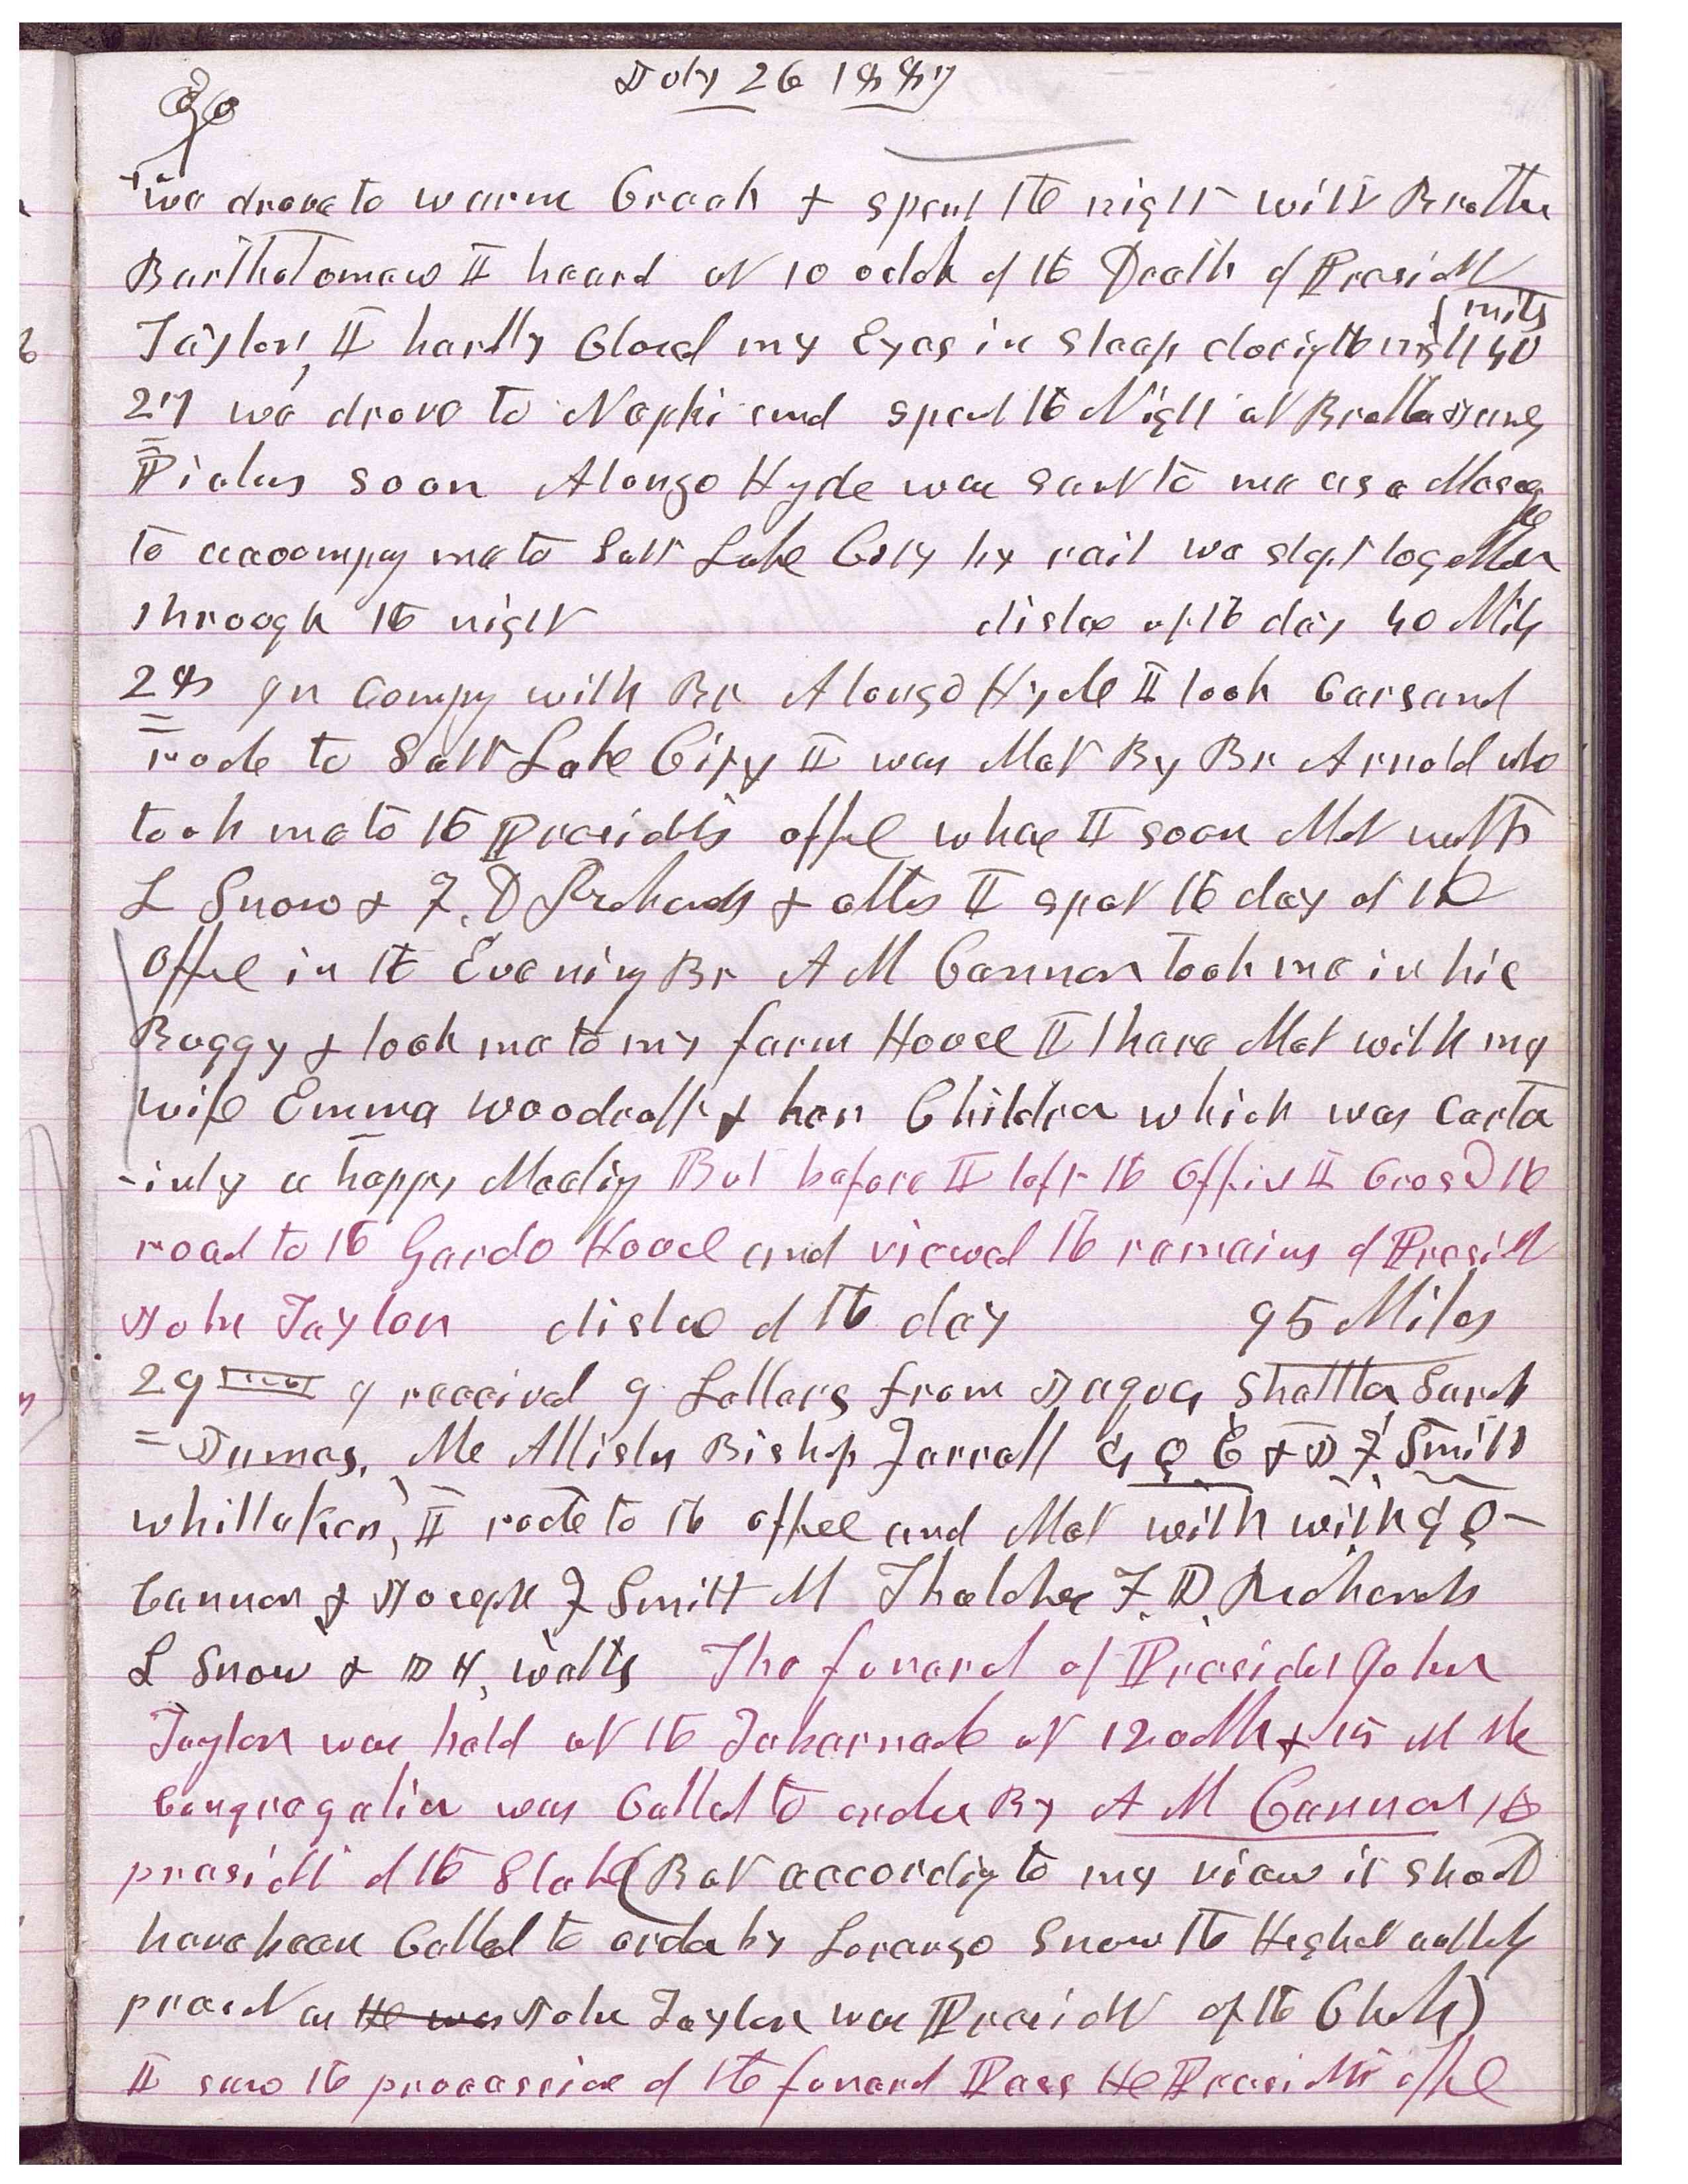 July 26 1887
We drove to warm Creek & spent the night with Brother
Bartholomew I heard at 10 oclok of the Death of Presidet
Taylor, I hardly Closed my Eyes in sleep during the night 40 mils
27 we drove to Nephi and spent the Night at Brother
soon Alonzo Hyde was sent to me as a Messeger
to accompay me to Salt Lake City by rail we slept together
through the night distae of the day 40 Mils
28 In Compy with Br Alonzo Hyde I took Cars and
rode to Salt Lake City I was Met By Br Arnold who
took me to the Presidets offie whare I soon Met with
L Snow & F. D Richards & othes I spet the day at the
offie in the Evening Br A M Cannon took me in his
Buggy & took me to my farm House I thare Met with my
wife Emma Woodruff & her Children which was Certa
-inly a happy Meetig But before I left the office I Crosd the
road to the Gardo House and viewed the remains of Presidt
John Taylor distae of the day 95 Miles
29 I received 9 Letters from Jaques Sarah
James, Mc Allister Bishop Farrell G Q C & J F Smith
whittaker, I rode to the offiee and Met with with G Q
Cannon & Joseph F Smith M Thatcher F. D. Richards
L Snow & D H, wells The funeral of President John
Taylor was held at the Tabernacle at 12 oclk & 15 M the
Congregation was Called to order By A M Cannon the
presidt of the Stake (But according to my view it should
have been Called to order by Lorenzo Snow the Highest authority
present as He was John Taylor was Presidet of the Chuh)
I saw the procession of the funeral Pass the Presidets offie